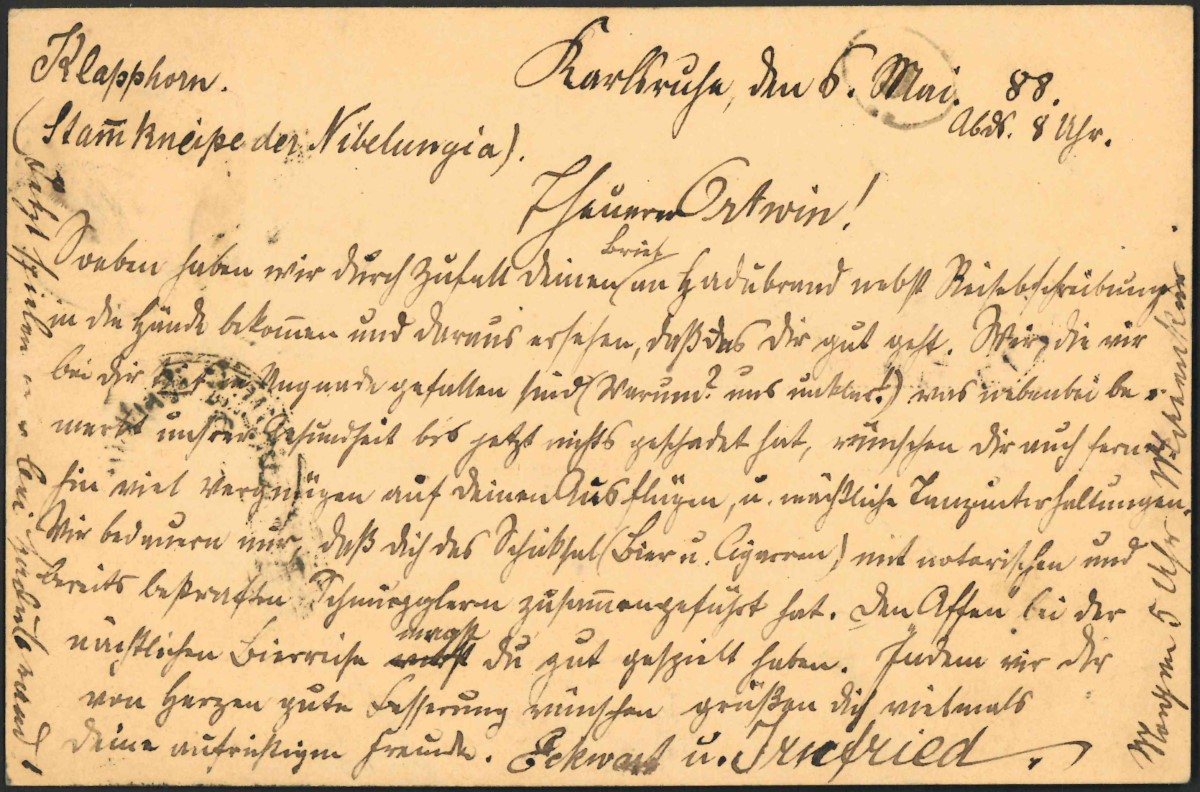 Klapphorn.
(Stam̅kneipe der Nibelungia).
Karlsruhe, den 6. Mai. 88.
Abds. 8 Uhr.
Theurer Ortwin!
Soeben haben wir durch Zufall deinen Brief an Hadubrand nebst Reisebschreibung
in die Hände bekom̅en und daraus ersehen, daß das dir gut geht. Wir, die wir
bei dir in Ungnade gefallen sind (Warum? uns unklar!) was nebenbei be-
merkt unsrer Gesundheit bis jetzt nichts geschadet hat, wünschen dir auch ferner
hin viel Vergnügen auf deinen Ausflügen, u. nächtliche Tanzunterhaltungen.
Wir bedauern nur, daß dich das Schicksal (Bier u. Cigarren) mit notorischen und
bereits bestraften Schmugglern zusam̅engeführt hat. Den Affen bei der
nächtlichen Bierreise magst du gut gespielt haben. Indem wir dir
von Herzen gute Besserung wünschen grüßen dich vielmals
deine aufrichtigen Freunde. Eckwart u. Irnfried.
Morgen 5 Uhr
Hadubrand!